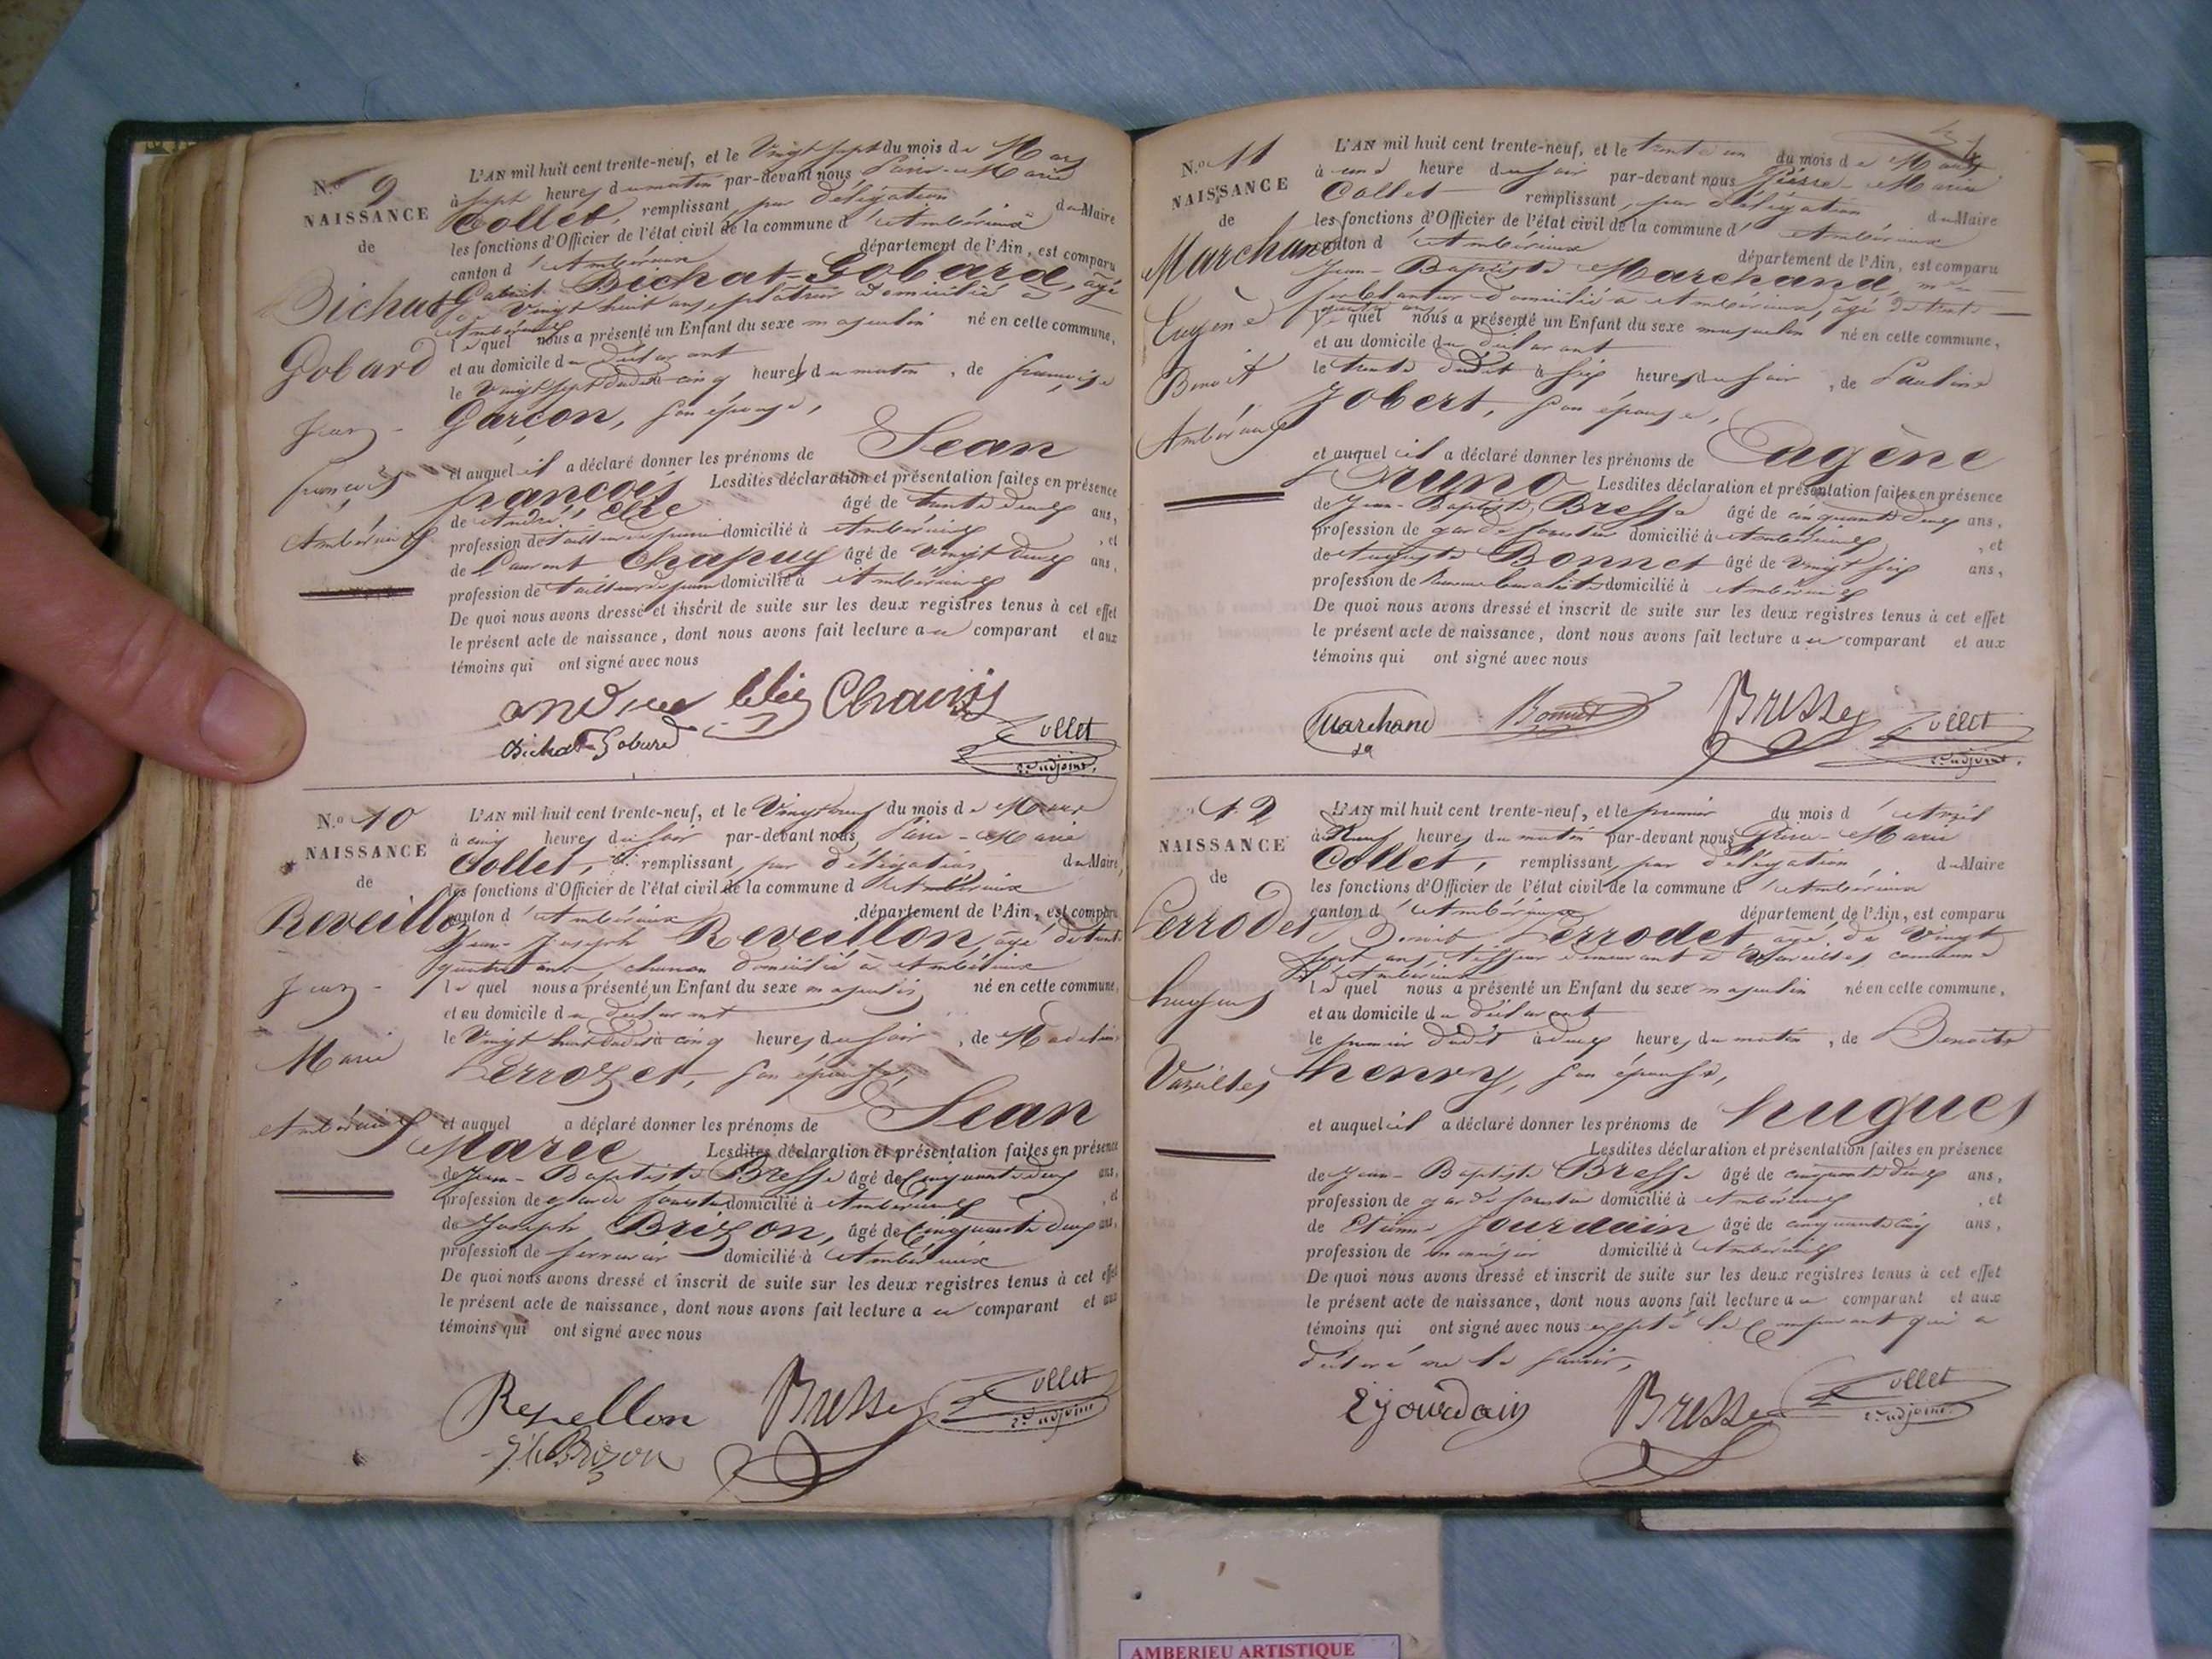 N.º 9
NAISSANCE
de
Bichat
Gobard
Jean-
françois
Ambérieux
L'AN mil huit cent trente-neuf, et le Vingt sept du mois de Mars
à sept heures du matin par-devant nous Pierre-Marie
Collet, remplissant, par délégation du Maire
les fonctions d'Officier de l'état civil de la commune d'Ambérieux
canton d'Ambérieux département de l'Ain, est comparu
Bichat-Gobard, âgé
de Vingt huit ans, plâtrier domicilié à
Ambérieux
lequel nous a présenté un Enfant du sexe masculin né en cette commune,
et au domicile du déclarant
le Vingt sept dudit à cinq heures du matin, de françoise
Garçon, son épouse,
et auquel il a déclaré donner les prénoms de Jean
françois Lesdites déclaration et présentation faites en présence
de André Elie âgé de trente deux ans,
profession de tailleur de pierre domicilié à Ambérieux, et
de Laurent Chapuy âgé de Vingt deux ans,
profession de tailleur de pierre domicilié à Ambérieux
De quoi nous avons dressé et inscrit de suite sur les deux registres tenus à cet effet
le présent acte de naissance, dont nous avons fait lecture au comparant et aux
témoins qui ont signé avec nous
Bichat Gobard
Collet
2e adjoint.
N.º 10
NAISSANCE
de
Reveillon
Jean-
Marie
Ambérieux
L'AN mil huit cent trente-neuf, et le Vingt neuf du mois de Mars
à cinq heures du soir par-devant nous, Pierre-Marie
Collet, remplissant, par délégation, du Maire,
les fonctions d'Officier de l'état civil de la commune d'Ambérieux
canton d'Ambérieux département de l'Ain, est comparu
Jean-Joseph Reveillon, âgé de trente
quatre ans, domicilié à Ambérieux
lequel nous a présenté un Enfant du sexe masculin né en cette commune,
et au domicile du déclarant
le Vingt huit dudit à cinq heures du soir, de
Perrozet, son épouse,
et auquel a déclaré donner les prénoms de Jean
Marie Lesdites déclaration et présentation faites en présence
de Jean-Baptiste Bresse âgé de Cinquante deux ans,
profession de garde forestier domicilié à Ambérieux, et
de Joseph Brizon, âgé de Cinquante deux ans,
profession de serrurier domicilié à Ambérieux
De quoi nous avons dressé et inscrit de suite sur les deux registres tenus à cet effet
le présent acte de naissance, dont nous avons fait lecture au comparant et aux
témoins qui ont signé avec nous
Revellon Bresse Collet
2e adjoint
Brizon
N.º 11
NAISSANCE
de
Marchand
Eugène
Benoit
Ambérieux
L'AN mil huit cent trente-neuf, et le trente un du mois de Mars,
à une heure du soir par-devant nous Pierre-Marie
Collet remplissant, par délégation, du Maire
les fonctions d'Officier de l'état civil de la commune d'Ambérieux
canton d'Ambérieux département de l'Ain, est comparu
Jean-Baptiste Marchand,
ferblantier domicilié à Ambérieux, âgé de trente
lequel nous a présenté un Enfant du sexe masculin né en cette commune,
et au domicile du déclarant
le trente dudit à six heures du soir, de Pauline
Jobert, son épouse,
et auquel il a déclaré donner les prénoms de Eugène
Bruno Lesdites déclaration et présentation faites en présence
de Jean-Baptiste Bresse âgé de cinquante deux ans,
profession de garde forestier domicilié à Ambérieux, et
de Auguste Bonnet âgé de Vingt six ans,
profession de domicilié à Ambérieux
De quoi nous avons dressé et inscrit de suite sur les deux registres tenus à cet effet
le présent acte de naissance, dont nous avons fait lecture au comparant et aux
témoins qui ont signé avec nous
Marchand Bonnet Bresse Collet
2e adjoint.
12
NAISSANCE
de
Perrodet
hugues
Vareilles
L'AN mil huit cent trente-neuf, et le premier du mois d'Avril
à Neuf heures du matin par-devant nous Pierre-Marie
Collet, remplissant, par délégation, du Maire
les fonctions d'Officier de l'état civil de la commune d'Ambérieux
canton d'Ambérieux département de l'Ain, est comparu
Benoit Perrodet, âgé de Vingt
sept ans, tisseur demeurant à Vareilles, commune
d'Ambérieux
lequel nous a présenté un Enfant du sexe masculin né en cette commune,
et au domicile du déclarant
le premier dudit à deux heures du matin, de Benoite
henry, son épouse,
et auquel il a déclaré donner les prénoms de hugues
Lesdites déclaration et présentation faites en présence
de Jean-Baptiste Bresse âgé de cinquante deux ans,
profession de garde forestier domicilié à Ambérieux, et
de Etienne Jourdain âgé de cinquante cinq ans,
profession de menuisier domicilié à Ambérieux
De quoi nous avons dressé et inscrit de suite sur les deux registres tenus à cet effet
le présent acte de naissance, dont nous avons fait lecture au comparant et aux
témoins qui ont signé avec nous excepté le Comparant qui a
déclaré ne le savoir,
E jourdain Bresse Collet
2e adjoint.
AMBERIEU ARTISTIQUE